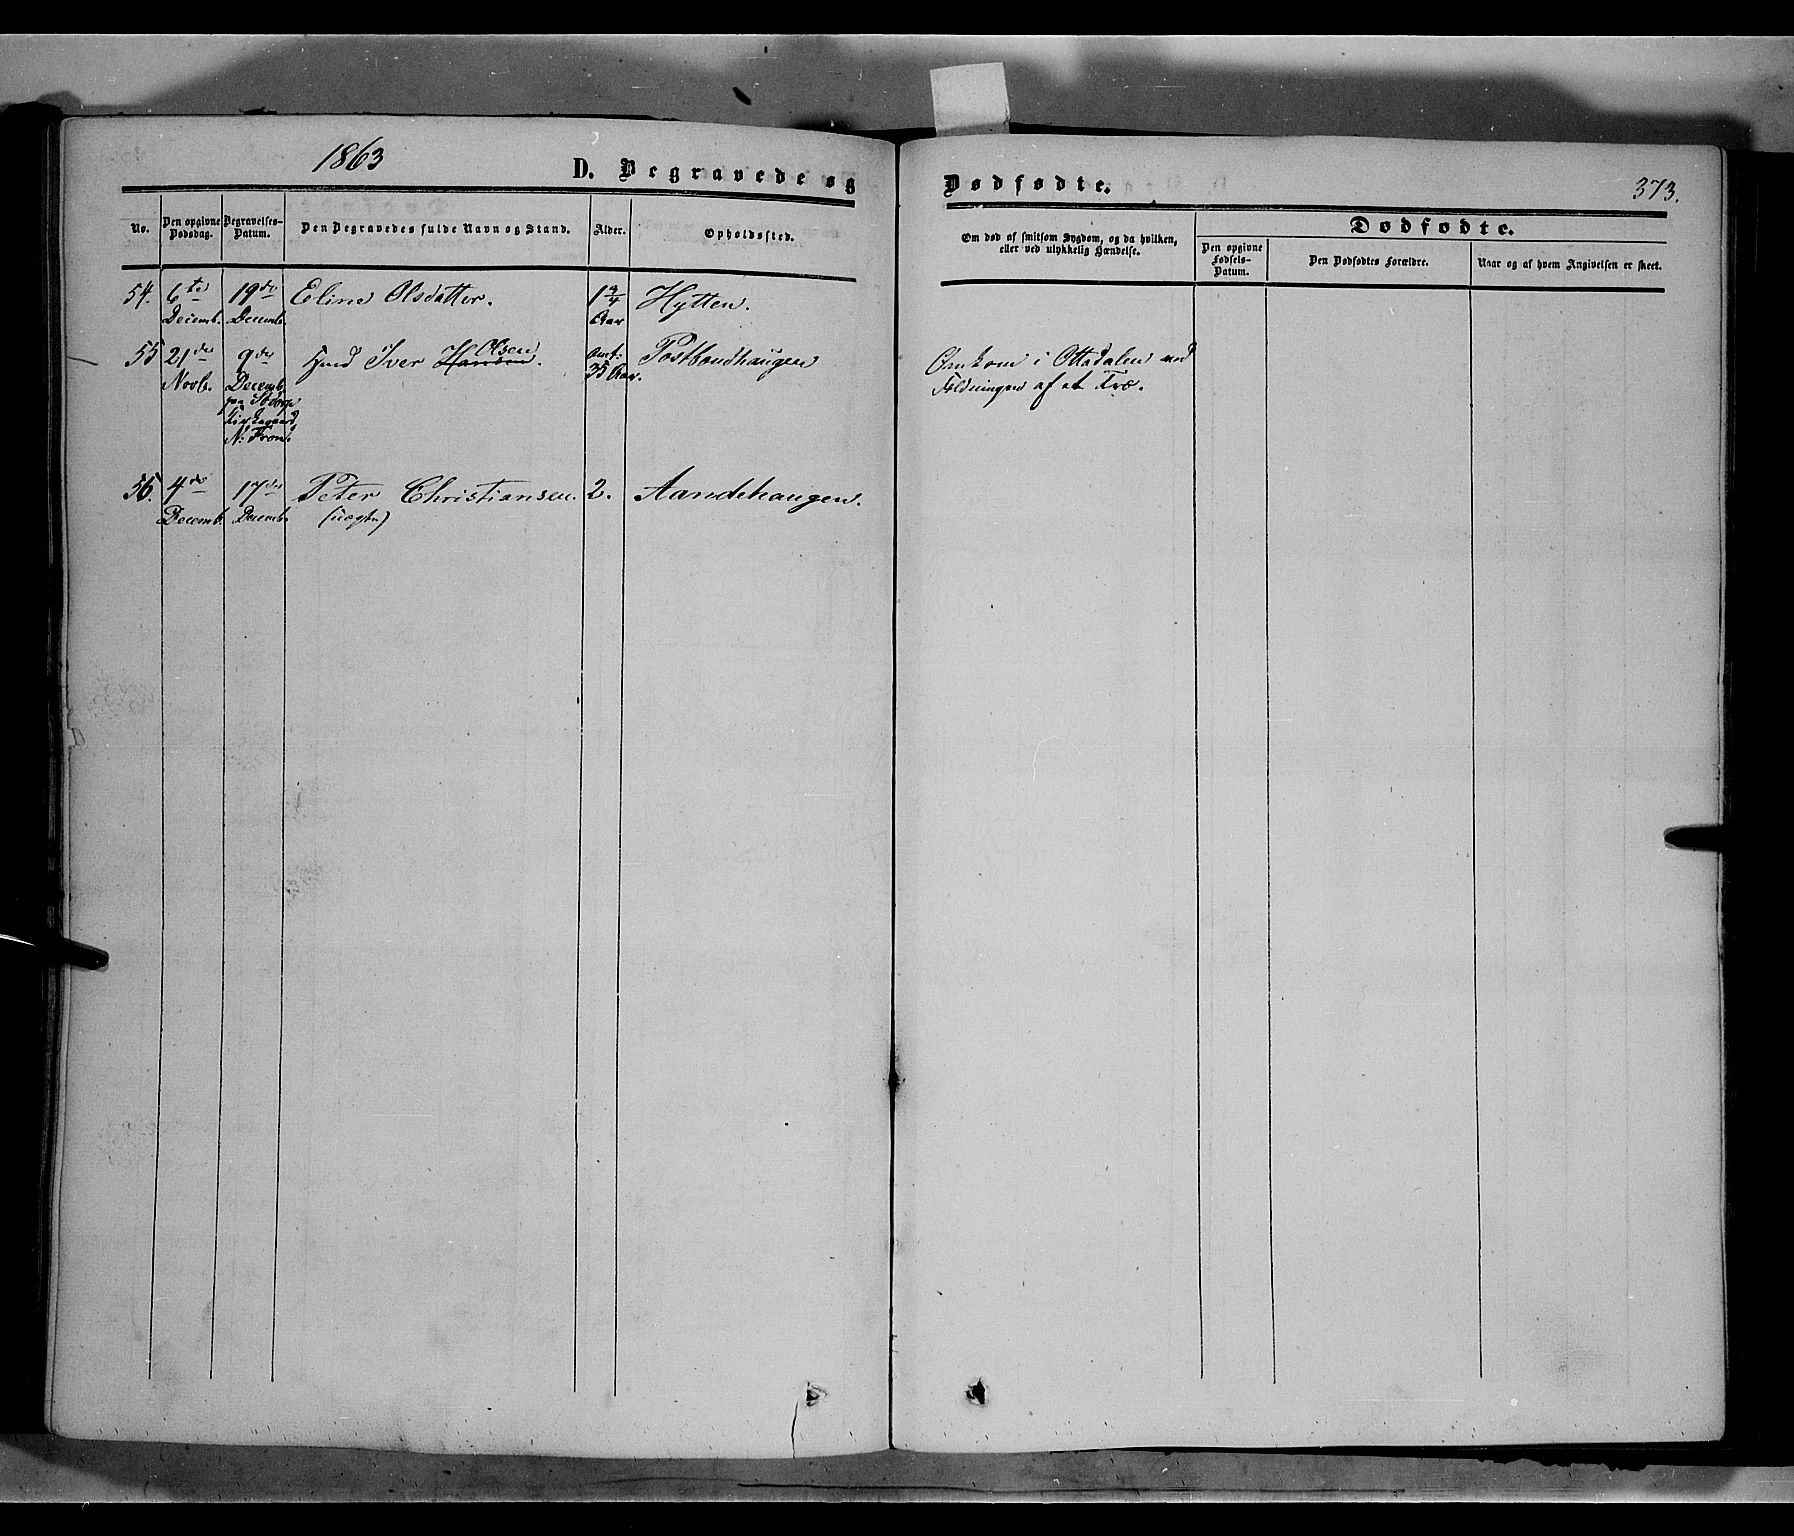 1863
D. Begravede og
Dødfødte.
373.
No.
Den opgivne
Dødsdag.
Begravelses-
Datum.
Den Begravedes fulde Navn og Stand.
Alder.
Opholdssted.
Om død af smitsom Sygdom, og da hvilken,
eller ved ulykkelig Hændelse.
Dødfødte.
Den opgivne
Fødsels-
Datum.
Den Dødfødtes Forældre.
Naar og af hvem Angivelsen er skeet.
54. 6te 19de Eline Olsdatter. 1 3/4 Hytten.
Decemb. Decemb. Aar
55 21de 9de Iver Hansen Olsen. Omt: Omkom i Ottadalen ved
Novb. Decemb. 35 Aar. Fældningen af et Træ.
paa
Kirkegaard,
N: Fron.
56. 4de 17de Peter Christiansen. 2. Aandehaugen.
Decemb. Decemb. (uægte)